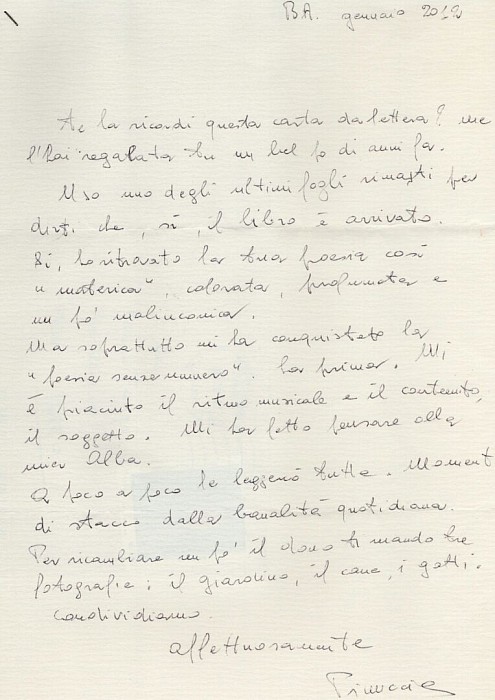 B.A. gennaio 2012
Te la ricordi questa carta da lettera? me
l'hai regalata tu un bel po di anni fa.
Uso uno degli ultimi fogli rimasti per
dirti che, sì, il libro è arrivato.
Sì, ho ritrovato la tua poesia così
"materica", colorata, profumata e
un po' malinconica.
Ma soprattutto mi ha conquistato la
"poesia senza numero". La prima. Mi
è piaciuto il ritmo musicale e il contenuto,
il soggetto. Mi ha fatto pensare alla
mia Alba.
A poco a poco le leggerò tutte. Moment
di stacco dalla banalità quotidiana.
Per ricambiare un po' il dono ti mando tre
fotografie: il giardino, il cane, i gatti.
Condividiamo.
affettuosamente
Pinuccia